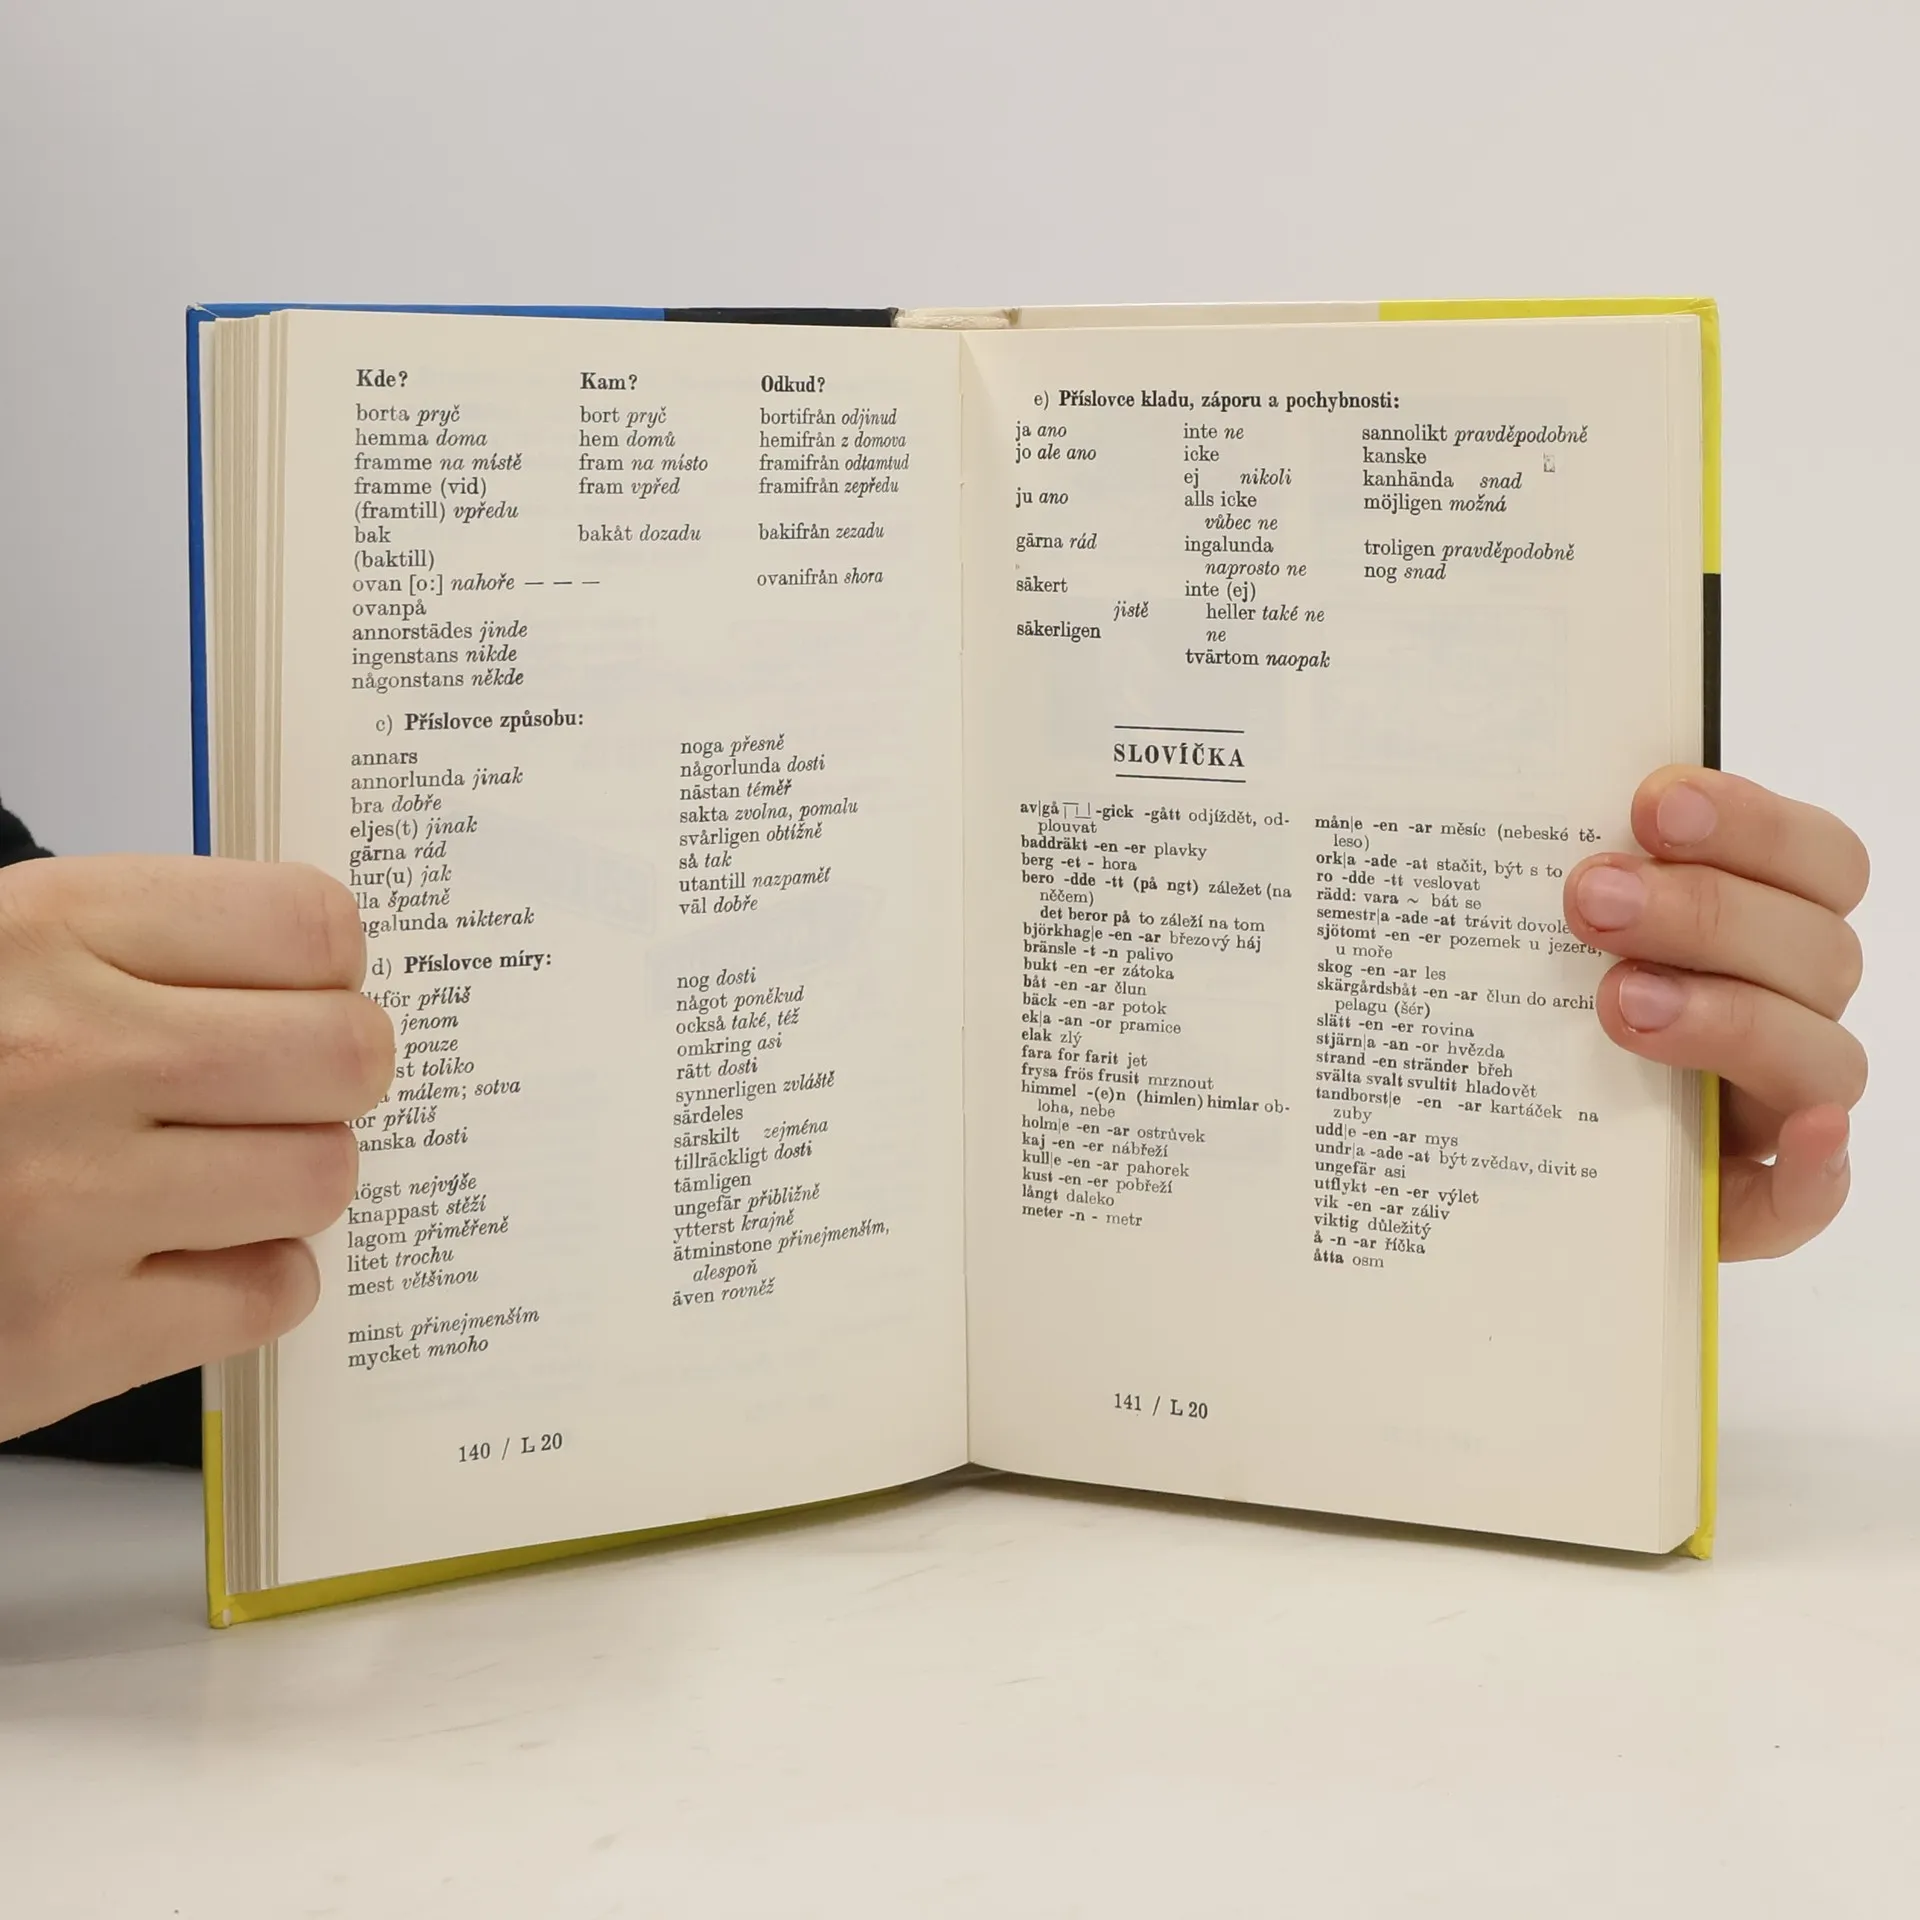 Kde? Kam? Odkud?
borta pryč bort pryč bortifrån odjinud
hemma doma hem domů hemifrån z domova
framme na místě fram na místo framifrån odtamtud
framme (vid) fram vpřed framifrån zepředu
(framtill) vpředu
bak bakåt dozadu bakifrån zezadu
(baktill)
ovan [o:] nahoře — — — ovanifrån shora
ovanpå
annorstädes jinde
ingenstans nikde
någonstans někde
c) Příslovce způsobu:
annars
annorlunda jinak
bra dobře
eljes(t) jinak
gärna rád
hur(u) jak
lla špatně
ngalunda nikterak
noga přesně
någorlunda dosti
nästan téměř
sakta zvolna, pomalu
svårligen obtížně
så tak
utantill nazpaměť
väl dobře
d) Příslovce míry:
tför příliš
jenom
pouze
st toliko
málem; sotva
för příliš
anska dosti
ögst nejvýše
knappast stěží
lagom přiměřeně
litet trochu
mest většinou
minst přinejmenším
mycket mnoho
nog dosti
något poněkud
också také, též
omkring asi
rätt dosti
synnerligen zvláště
särdeles
särskilt zejména
tillräckligt dosti
tämligen
ungefär přibližně
ytterst krajně
åtminstone přinejmenším,
alespoň
även rovněž
140 / L 20
e) Příslovce kladu, záporu a pochybnosti:
ja ano inte ne sannolikt pravděpodobně
jo ale ano icke kanske
ej nikoli kanhända snad
ju ano alls icke möjligen možná
vůbec ne
gärna rád ingalunda troligen pravděpodobně
naprosto ne nog snad
säkert inte (ej)
jistě heller také ne
säkerligen ne
tvärtom naopak
SLOVÍČKA
av|gå -gick -gått odjíždět, od-
plouvat
baddräkt -en -er plavky
berg -et - hora
bero -dde -tt (på ngt) záležet (na
něčem)
det beror på to záleží na tom
björkhag|e -en -ar březový háj
bränsle -t -n palivo
bukt -en -er zátoka
båt -en -ar člun
bäck -en -ar potok
ek|a -an -or pramice
elak zlý
fara for farit jet
frysa frös frusit mrznout
himmel -(e)n (himlen) himlar ob-
loha, nebe
holm|e -en -ar ostrůvek
kaj -en -er nábřeží
kull|e -en -ar pahorek
kust -en -er pobřeží
långt daleko
meter -n - metr
mån|e -en -ar měsíc (nebeské tě-
leso)
ork|a -ade -at stačit, být s to
ro -dde -tt veslovat
rädd: vara ~ bát se
semestr|a -ade -at trávit dovole
sjötomt -en -er pozemek u jezera,
u moře
skog -en -ar les
skärgårdsbåt -en -ar člun do archi
pelagu (šér)
slätt -en -er rovina
stjärn|a -an -or hvězda
strand -en stränder břeh
svälta svalt svultit hladovět
tandborst|e -en -ar kartáček na
zuby
udd|e -en -ar mys
undr|a -ade -at být zvědav, divit se
ungefär asi
utflykt -en -er výlet
vik -en -ar záliv
viktig důležitý
å -n -ar říčka
åtta osm
141 / L 20